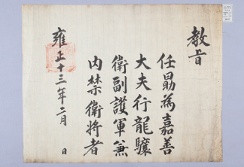 教旨
任勛為嘉善
大夫行龍驤
衛副護軍兼
內禁衛將者
雍正十三年二月 日